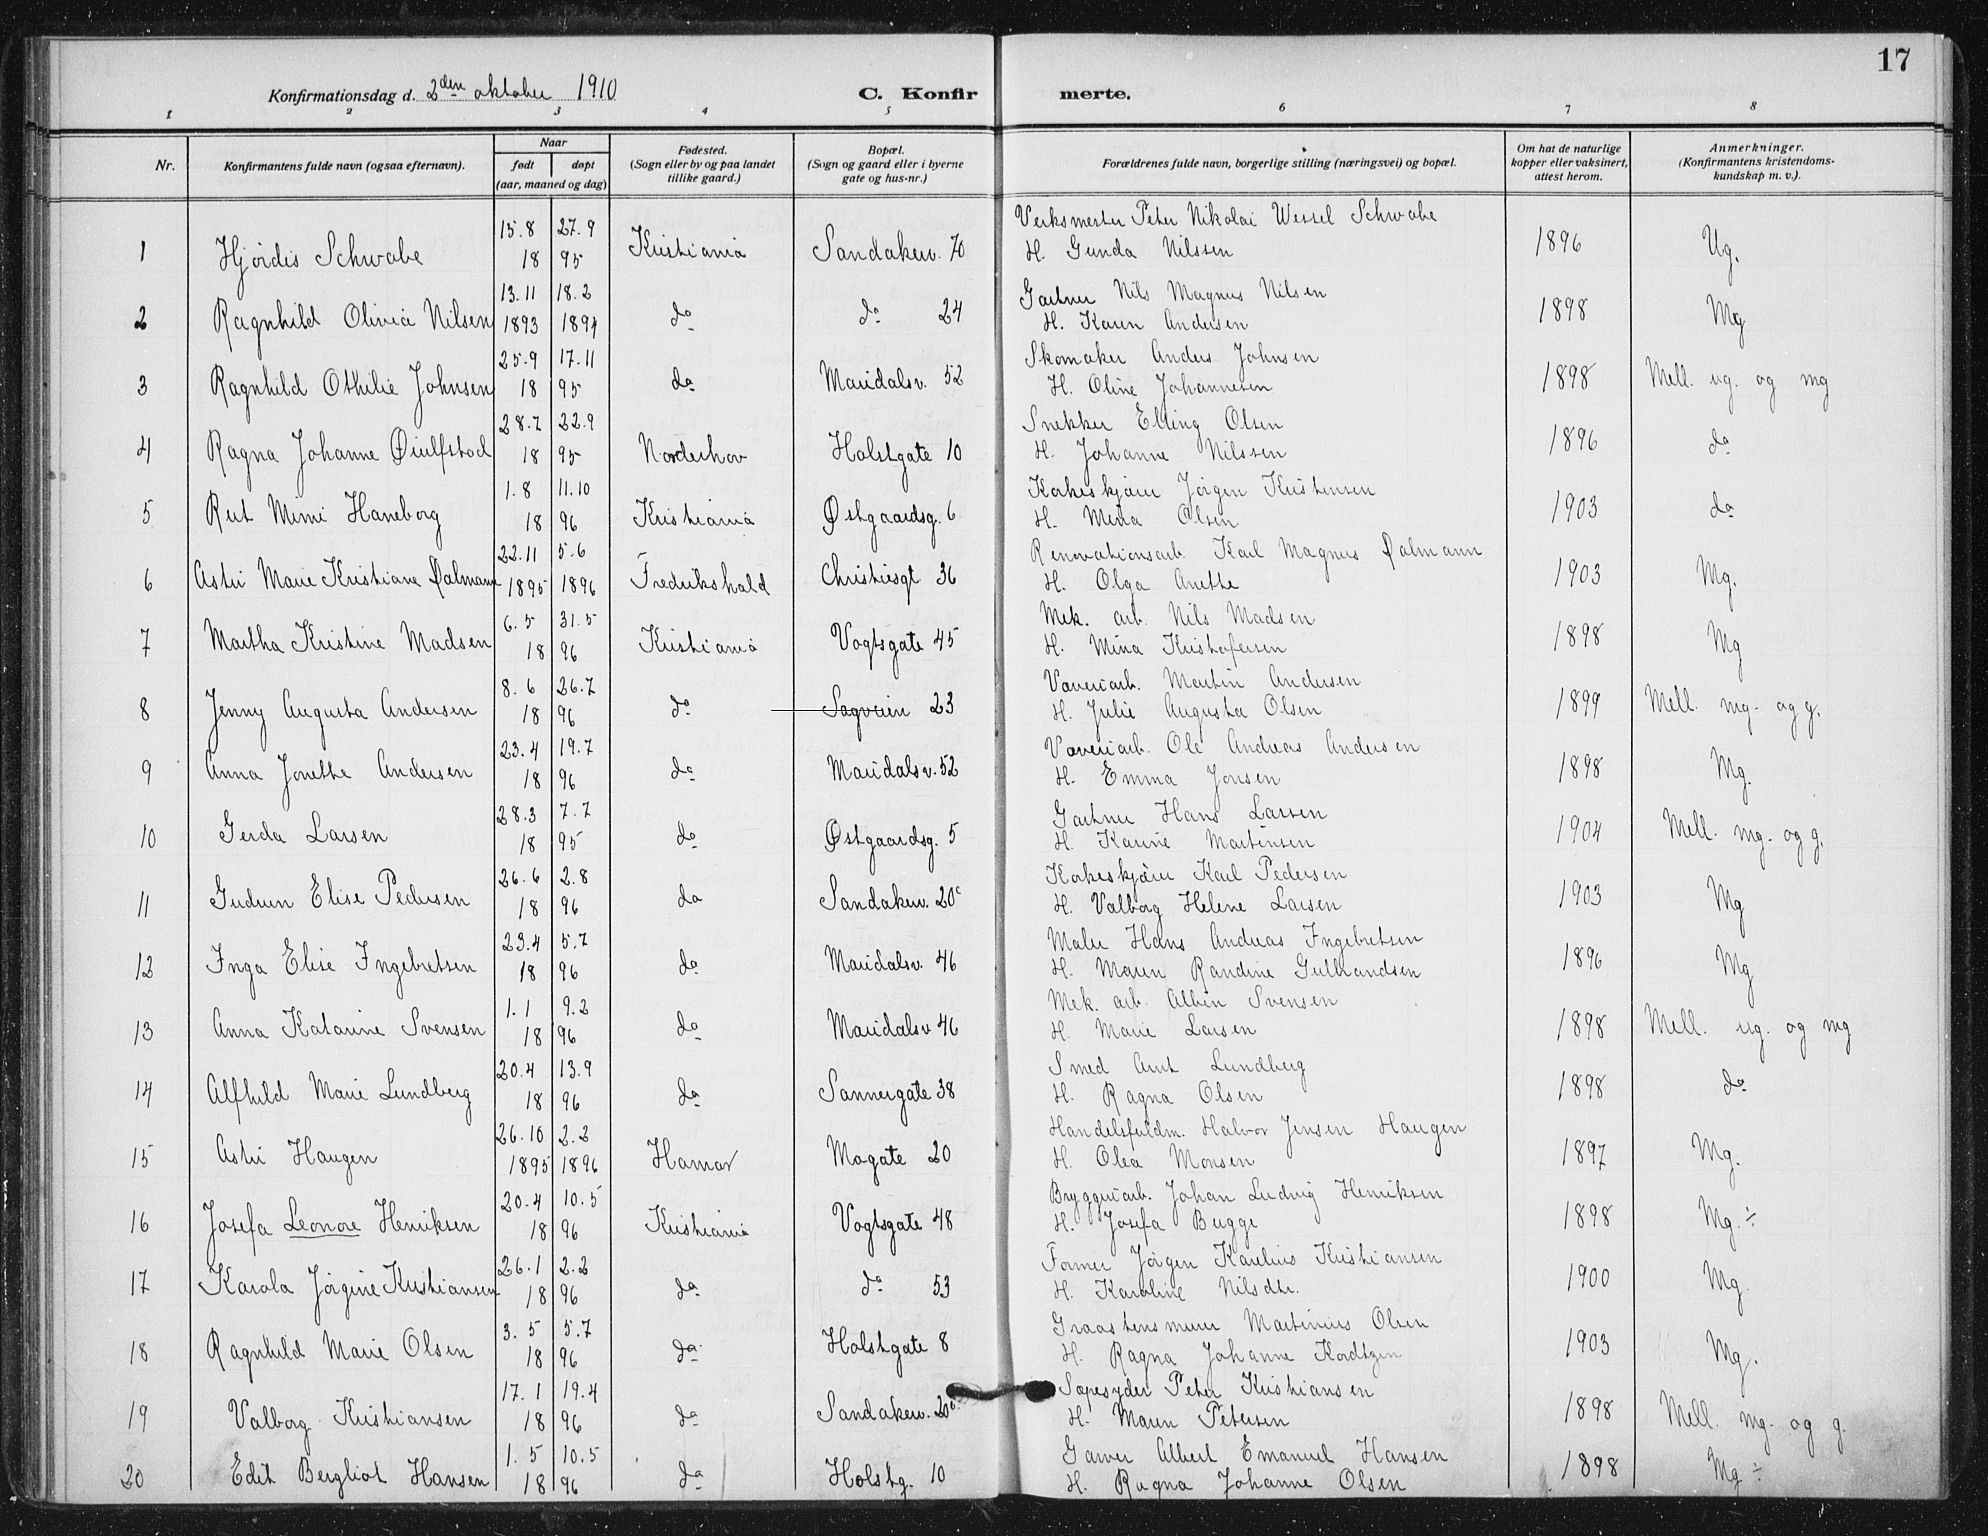 17
Konfirmationsdag d. 2den oktober 1910 C. Konfirmerte.
1 2 3 4 5 6 7 8
Nr. Konfirmantens fulde navn (ogsaa efternavn). Naar født døpt (aar, maaned og dag) Fødested. (Sogn eller by og paa landet tillike gaard.) Bopæl. (Sogn og gaard eller i byerne gate og hus-nr.) Forældrenes fulde navn, borgerlige stilling (næringsvei) og bopæl. Om hat de naturlige kopper eller vaksinert, attest herom. Anmerkninger. (Konfirmantens kristendomskundskap m. v.).
15.8 27.9 Verksmester Peter Nikolai Wessel Schwabe
1 Hjördis Schwabe 18 95 Kristiania Sandakerv. 70 H. Gunda Nilssen 1896 Ug.
13.11 18.2 Gartner Nils Magnus Nilsen
2 Ragnhild Olivia Nilsen 1893 1894 do do 24 H. Karen Andersen 1898 Mg
25.9 17.11 Skomaker Anders Johnsen
3 Ragnhild Othilie Johnsen 18 95 do Maridalsv. 52 H. Oline Johannesen 1898 Mell. ug. og mg
28.7 22.9 Snekker Elling Olsen
4 Ragna Johanne Øiulfstad 18 95 Norderhov Holstgate 10 H. Johanne Nilssen 1896 do
1.8 11.10 Korkeskjärer Jörgen Kristensen
5 Rut Mimi Haneborg 18 96 Kristiania Østgaardsg. 6 H. Mina Olsen 1903 do
22.11 5.6 Renovationsarb. Karl Magnus Dalmann
6 Astri Marie Kristiane Dalmann 1895 1896 Fredrikshald Christiesgt 36 H. Olga Anethe 1903 Mg.
6.5 31.5 Mek. arb. Nils Madsen
7 Martha Kristine Madsen 18 96 Kristiania Vogtsgate 45 H. Mina Kristofersen 1898 Mg
8.6 26.7 Væveriarb. Martin Andersen
8 Jenny Augusta Andersen 18 96 do Sagveien 23 H. Julie Augusta Olsen 1899 Mell. mg. og g.
23.4 19.7 Væveriarb. Ole Andreas Andersen
9 Anna Jonette Andersen 18 96 do Maridalsv. 52 H. Emma Jonsen 1898 Mg.
28.3 7.7 Gartner Hans Larsen
10 Gerda Larsen 18 95 do Østgaardsg. 5 H. Karine Martinsen 1904 Mell. mg. og g.
26.6 2.8 Korkeskjärer Karl Pedersen
11 Gudrun Elise Pedersen 18 96 do Sandakerv. 20c H. Valborg Helene Larsen 1903 Mg
23.4 5.7 Maler Hans Andreas Ingebretsen
12 Inga Elise Ingebretsen 18 96 do Maridalsv. 46 H. Maren Randine Gulbrandsen 1896 Mg
1.1 9.2 Mek. arb. Albin Svensen
13 Anna Katarine Svensen 18 96 do Maridalsv 46 H. Marie Larsen 1898 Mell. ug. og mg
20.4 13.9 Smed Arnt Lundberg
14 Alfhild Marie Lundberg 18 96 do Sannergate 38 H. Ragna Olsen 1898 do
26.10 2.2 Handelsfuldm. Halvor Jensen Haugen
15 Astri Haugen 1895 1896 Hamar Mogate 20 H. Olea Monsen 1897 Mg.
20.4 10.5 Bryggeriarb. Johan Ludvig Henriksen
16 Josefa Leonore Henriksen 18 96 Kristiania Vogtsgate 48 H. Josefa Bugge 1898 Mg. ÷
26.1 2.2 Former Jörgen Karelius Kristiansen
17 Karola Jörgine Kristiansen 18 96 do do 53 H. Karoline Nilsdtr. 1900 Mg.
3.5 5.7 Graastensmurer Martinius Olsen
18 Ragnhild Marie Olsen 18 96 do Holstgate 8 H. Ragna Johanne 1903 Mg.
17.1 19.4 Sæpesyder Peter Kristiansen
19 Valborg Kristiansen 18 96 do Sandakerv. H. Maren Petersen 1898 Mell. mg. og g.
1.5 10.5 Garver Albert Emanuel Hansen
20 Edit Bergliot Hansen 18 96 do Holstg. 10 H. Ragna Johanne Olsen 1898 Mg ÷